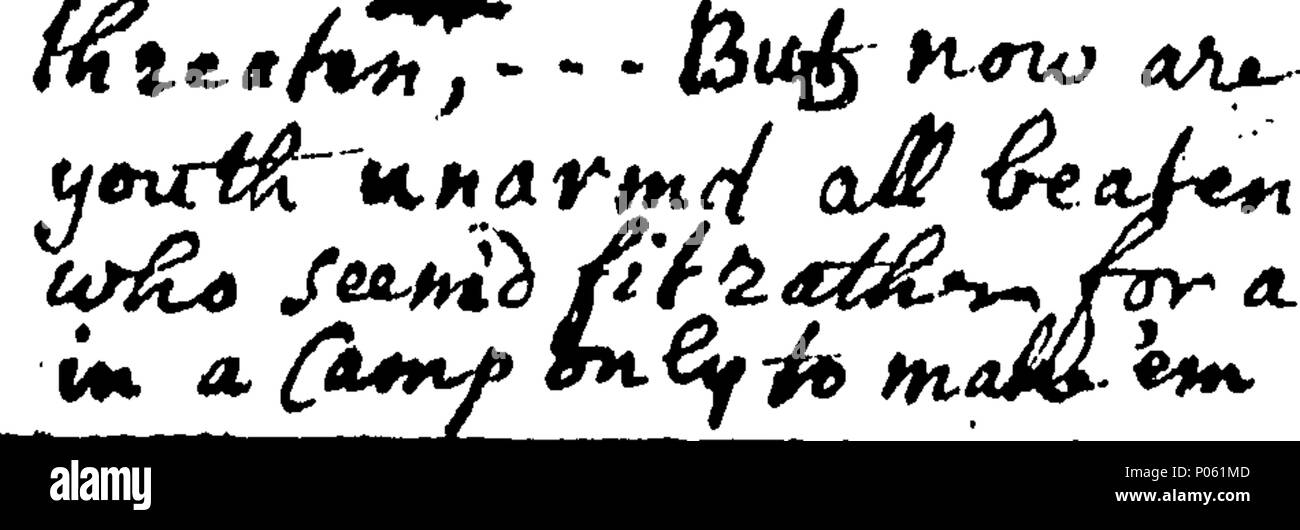 threaten, - - - But now are
youth unarmd all beaten
who seem'd fit rather for a
in a Camp only to make 'em
alamy
Image ID: P061MD
www.alamy.com